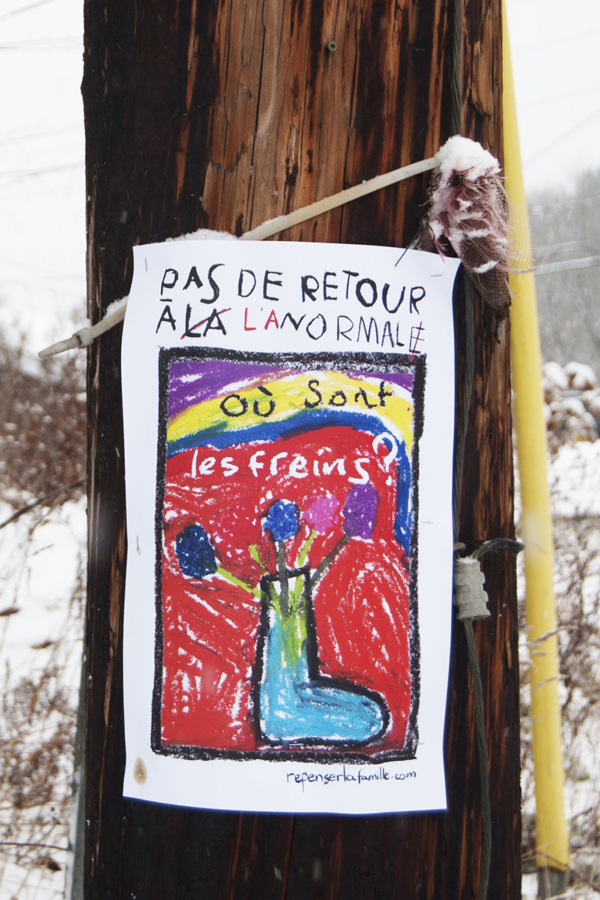 PAS DE RETOUR
À LA L'ANORMALE
où sont
les freins?
repenserlafamille.com